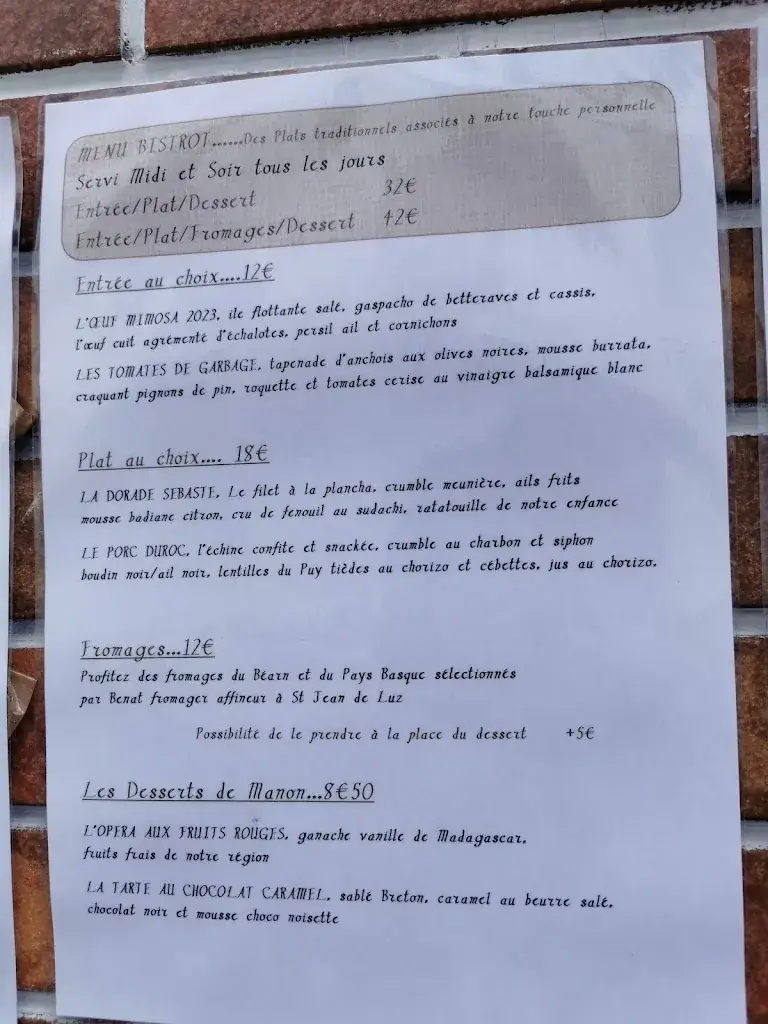 MENU BISTROT......Des Plats traditionnels associés à notre touche personnelle
Servi Midi et Soir tous les jours
Entrée/Plat/Dessert 32€
Entrée/Plat/Fromages/Dessert 42€
Entrée au choix....12€
L'ŒUF MIMOSA 2023, ile flottante salé, gaspacho de betteraves et cassis,
l'œuf cuit agrémenté d'échalotes, persil ail et cornichons
LES TOMATES DE GARBAGE, tapenade d'anchois aux olives noires, mousse burrata,
craquant pignons de pin, roquette et tomates cerise au vinaigre balsamique blanc
Plat au choix.... 18€
LA DORADE SEBASTE, Le filet à la plancha, crumble meunière, ails frits
mousse badiane citron, cru de fenouil au sudachi, ratatouille de notre enfance
LE PORC DUROC, l'échine confite et snackée, crumble au charbon et siphon
boudin noir/ail noir, lentilles du Puy tièdes au chorizo et cébettes, jus au chorizo.
Fromages...12€
Profitez des fromages du Béarn et du Pays Basque sélectionnés
par Benat fromager affineur à St Jean de Luz
Possibilité de le prendre à la place du dessert +5€
Les Desserts de Manon...8€50
L'OPERA AUX FRUITS ROUGES, ganache vanille de Madagascar,
fruits frais de notre région
LA TARTE AU CHOCOLAT CARAMEL, sablé Breton, caramel au beurre salé,
chocolat noir et mousse choco noisette